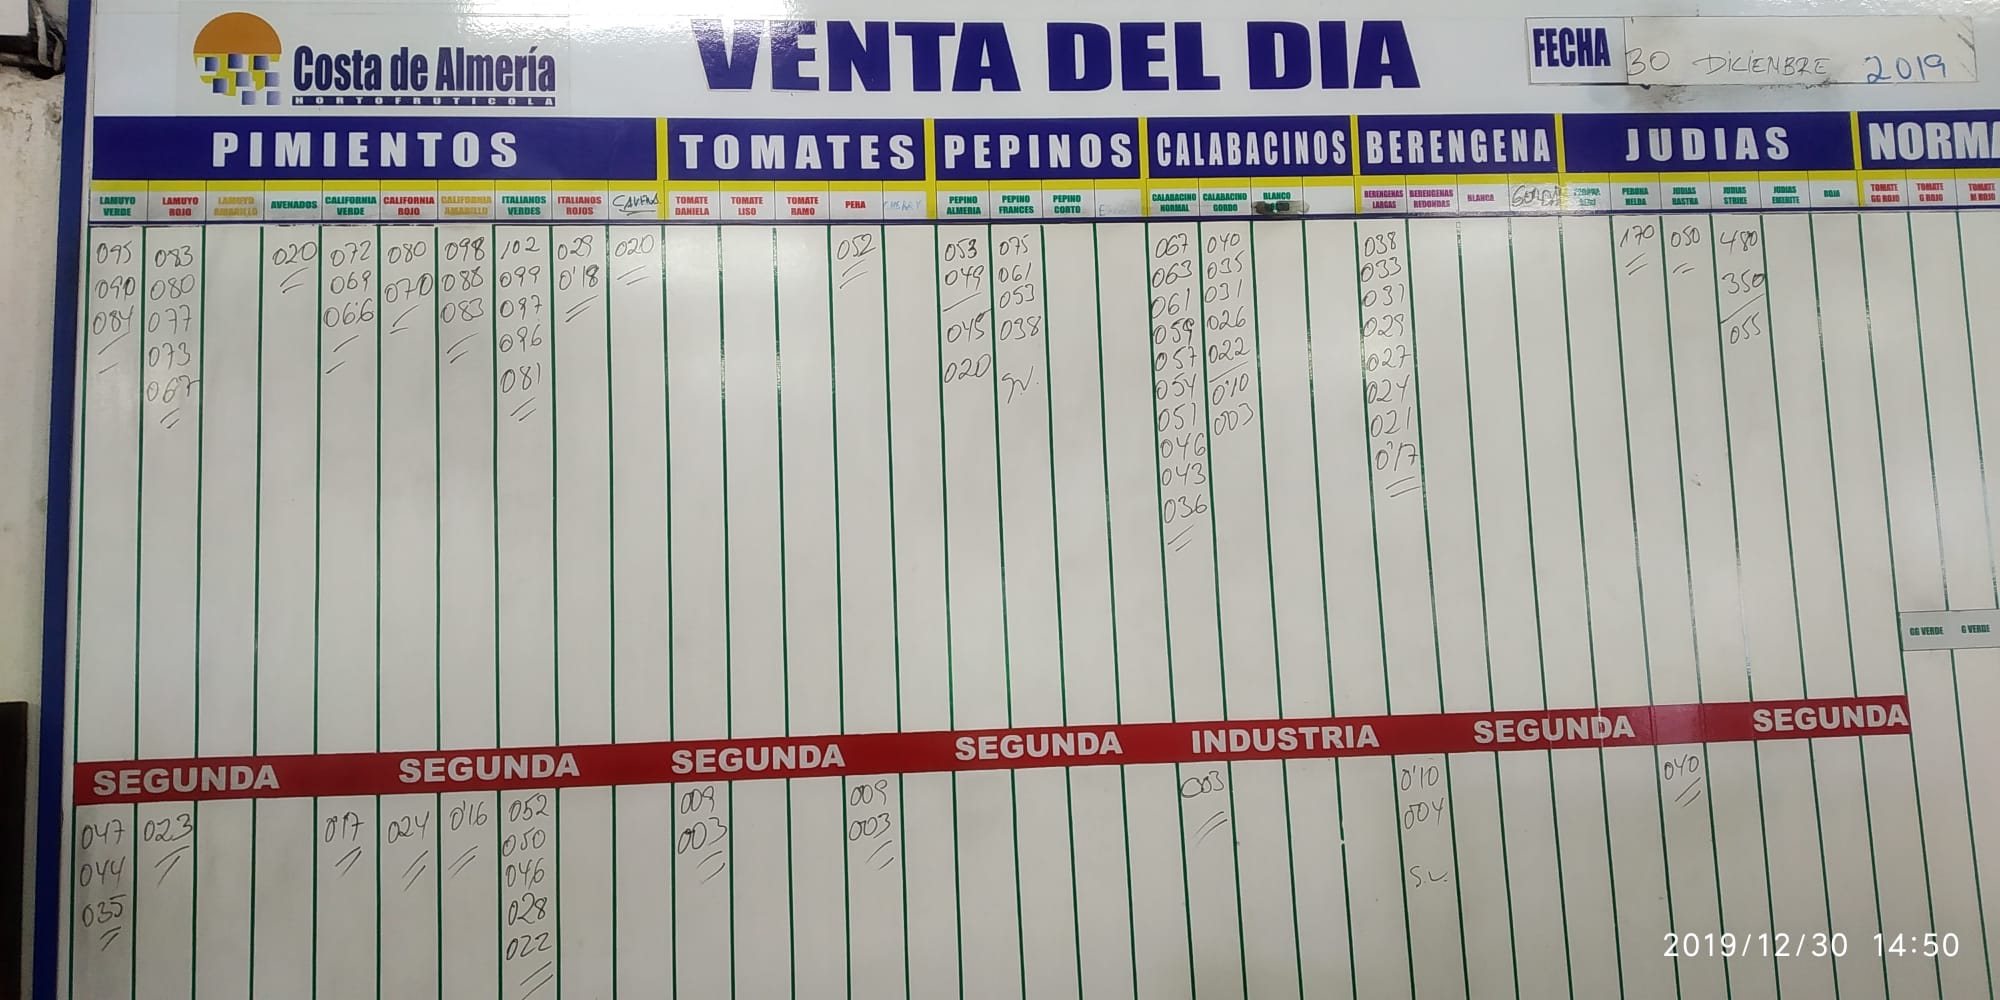 Costa de Almería
HORTOFRUTICOLA
VENTA DEL DIA
FECHA 30 DICIENBRE 2019
PIMIENTOS TOMATES PEPINOS CALABACINOS BERENGENA JUDIAS NORMA
LAMUYO VERDE
LAMUYO ROJO
LAMUYO AMARILLO
AVENADOS
CALIFORNIA VERDE
CALIFORNIA ROJO
CALIFORNIA AMARILLO
ITALIANOS VERDES
ITALIANOS ROJOS
TOMATE DANIELA
TOMATE LISO
TOMATE RAMO
PERA
CHERRY
PEPINO ALMERIA
PEPINO FRANCES
PEPINO CORTO
CALABACINO NORMAL
CALABACINO GORDO
BLANCO
BERENGENAS LARGAS
BERENGENAS REDONDAS
BLANCA
PERONA NELDA
JUDIAS RASTRA
JUDIAS STRIKE
JUDIAS EMERITE
ROJA
TOMATE GG ROJO
TOMATE G ROJO
TOMATE M ROJO
095 083 020 072 080 098 102 029 020 052 053 075 067 040 038 170 050 480
090 080 069 070 088 099 0'18 049 061 063 035 033 350
084 077 066 083 097 053 061 031 031 055
073 096 045 038 059 026 029
067 081 020 057 022 027
054 0'10 024
051 003 021
046 0'17
043
036
GG VERDE G VERDE
SEGUNDA SEGUNDA SEGUNDA SEGUNDA INDUSTRIA SEGUNDA SEGUNDA
047 023 0'17 024 0'16 052 009 009 003 0'10 040
044 050 003 003 004
035 046 S.V.
028
022
2019/12/30 14:50